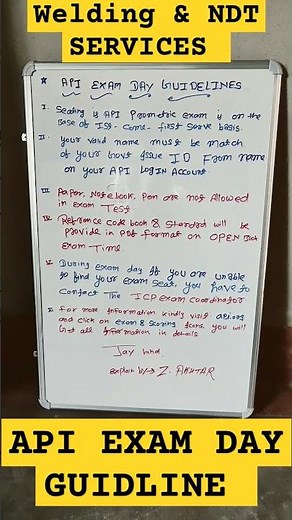 Welding & NDT
SERVICES
* API EXAM DAY GUIDELINES
I. Seating of API Prometric exam is on the
base of Ist- Come- first Serve basis.
II. your valid name must be match
of your Govt issue ID From name
on your API LogIN Account.
III. Paper, Notebook, Pen are not Allowed
in exam Test.
IV. Refrence code book & Standard will be
provide in Pdf format on OPEN Book
Exam Time
V. During exam day If you are unable
to find your exam seat, you have to
contact the ICP exam coordinator
for more Information kindly visit
and click on exam & Scoring you will
Get all Information in details
Jay hind.
explain by→ Z. AKHTAR
API EXAM DAY
GUIDLINE